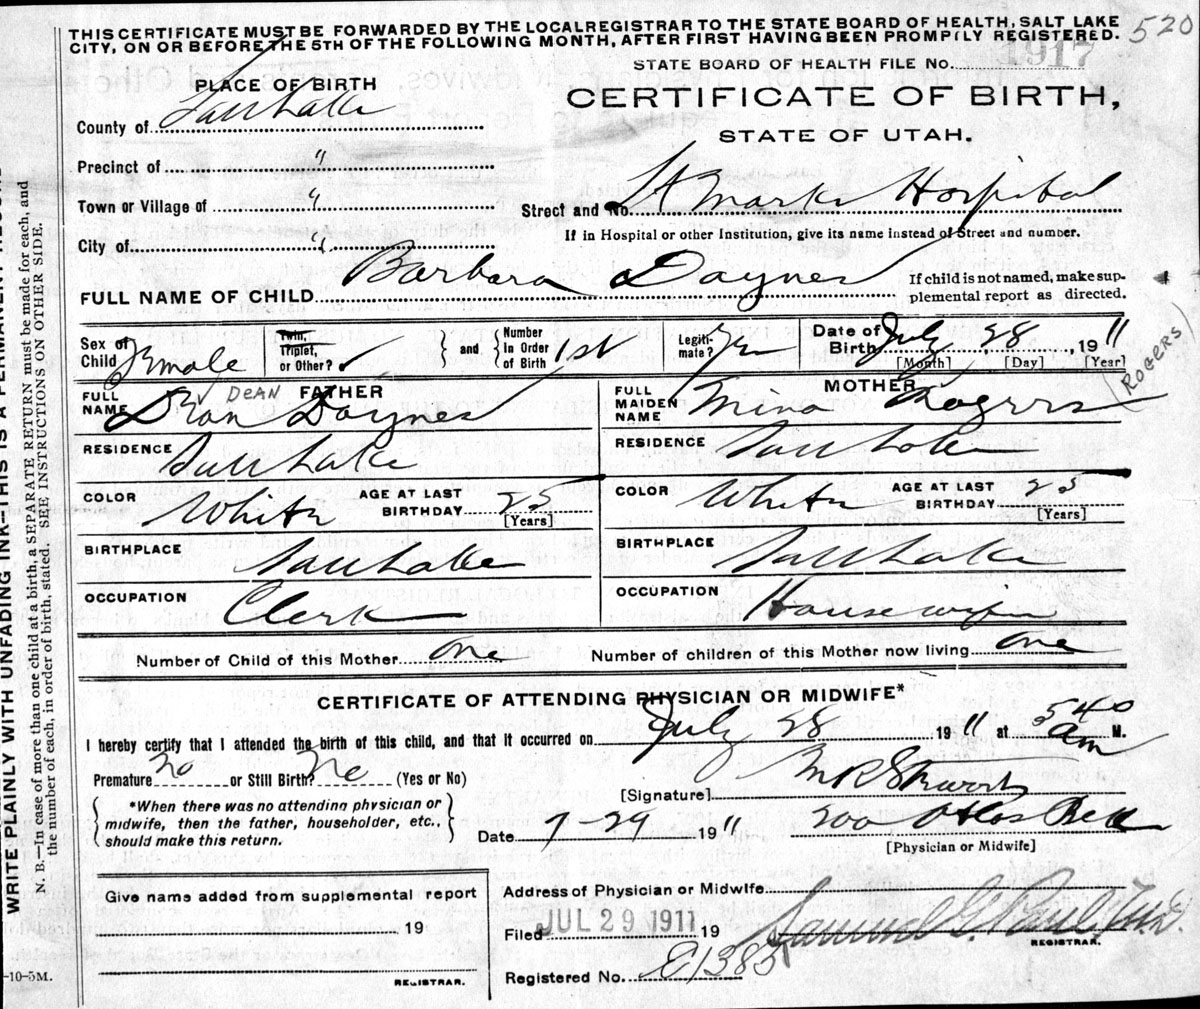 THIS CERTIFICATE MUST BE FORWARDED BY THE LOCAL REGISTRAR TO THE STATE BOARD OF HEALTH, SALT LAKE
CITY, ON OR BEFORE THE 5TH OF THE FOLLOWING MONTH, AFTER FIRST HAVING BEEN PROMPTLY REGISTERED.
520
STATE BOARD OF HEALTH FILE NO. 1917
PLACE OF BIRTH
CERTIFICATE OF BIRTH,
STATE OF UTAH.
County of Salt Lake
Precinct of "
Town or Village of "
Street and No. St Marks Hospital
If in Hospital or other Institution, give its name instead of Street and number.
City of "
FULL NAME OF CHILD Barbara Daynes
If child is not named, make sup-
plemental report as directed.
Sex of Child Female
Twin, Triplet, or Other?
and
Number In Order of Birth 1st
Legiti-mate? Yes
Date of Birth July 28, 1911
[Month] [Day] [Year]
FATHER
FULL NAME Dean Daynes
DEAN
MOTHER
FULL MAIDEN NAME Mina Rogers
ROGERS
RESIDENCE Salt Lake
RESIDENCE Salt Lake
COLOR White AGE AT LAST BIRTHDAY 25 [Years]
COLOR White AGE AT LAST BIRTHDAY 25 [Years]
BIRTHPLACE Salt Lake
BIRTHPLACE Salt Lake
OCCUPATION Clerk
OCCUPATION Housewife
Number of Child of this Mother one
Number of children of this Mother now living one
CERTIFICATE OF ATTENDING PHYSICIAN OR MIDWIFE*
I hereby certify that I attended the birth of this child, and that it occurred on July 28 1911 at 540 am M.
Premature No or Still Birth? No (Yes or No)
*When there was no attending physician or
midwife, then the father, householder, etc.,
should make this return.
[Signature]
Date 7-29 1911
[Physician or Midwife]
Give name added from supplemental report
19
REGISTRAR.
Address of Physician or Midwife
Filed JUL 29 1911 19
Samuel G. Paul
REGISTRAR.
Registered No. E1385
-10-5M.
WRITE PLAINLY WITH UNFADING INK—THIS IS A PERMANENT
N. B.—In case of more than one child at a birth, a SEPARATE RETURN must be made for each, and
the number of each, in order of birth, stated. SEE INSTRUCTIONS ON OTHER SIDE.